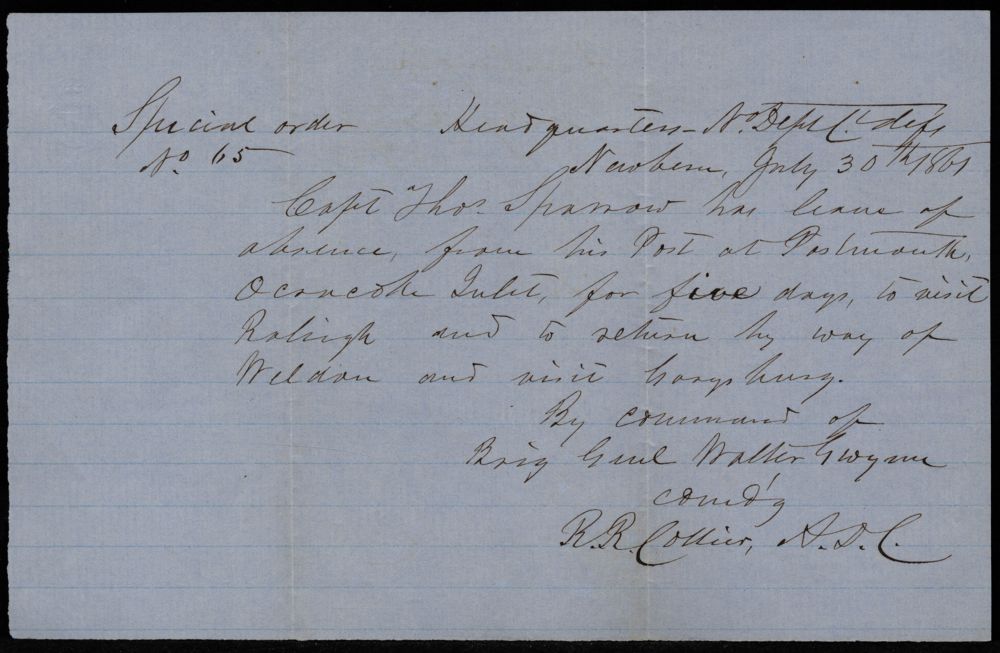 Special order Headquarters - No. Dept. Ct. defs
No 65 Newbern, July 30th 1861
Capt Thos. Sparrow has leave of
absence, from his Post at Postmouth,
Ocracoke Inlet, for five days, to visit
Raleigh and to return by way of
Weldon and visit Garysburg.
By command of
Brig Genl Walter Gwynn
comd'g
R. R. Collier, A. D. C.